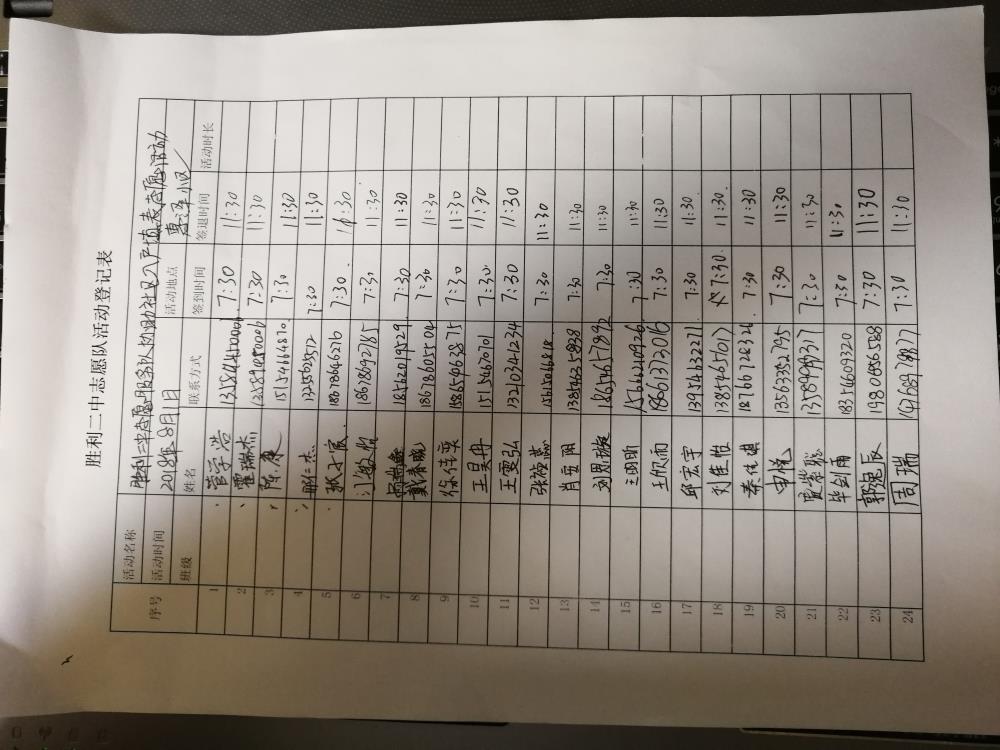 胜利二中志愿队活动登记表
活动名称 胜利二中志愿服务队协助社区入户填表志愿活动
活动时间 2018年8月1日 活动地点 惠泽小区
序号 班级 姓名 联系方式 签到时间 签退时间 活动时长
1 管学浩 7:30 11:30
2 霍瑞杰 7:30 11:30
3 陈康 15154664870 7:30 11:30
4 邢仁杰 7:30 11:30
5 张子宸 18678646276 7:30 11:30
6 18678692785 7:30 11:30
7 18562019529 7:30 11:30
8 戴春晓 18678605504 7:30 11:30
9 徐佳奕 15865463875 7:30 11:30
10 王昊冉 15154670701 7:30 11:30
11 王雯弘 13210341234 7:30 11:30
12 张筱蕊 7:30 11:30
13 肖雨 13854635838 7:30 11:30
14 刘思璇 18654657892 7:30 11:30
15 王明昕 15666210926 7:30 11:30
16 王欣雨 18661372016 7:30 11:30
17 邱宏宇 13954632211 7:30 11:30
18 刘佳怡 13854657017 7:30 11:30
19 秦佳琪 18766728326 7:30 11:30
20 申悦 13563352795 7:30 11:30
21 贾崇聪 13589989317 7:30 11:30
22 毕剑南 18354603320 7:30 11:30
23 郭逸辰 19806856588 7:30 11:30
24 周瑞 7:30 11:30